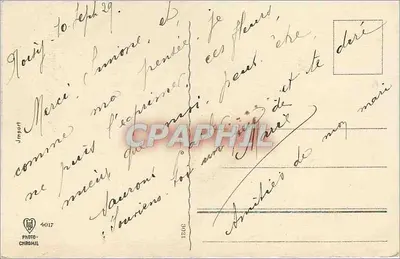 Noisy, 10 Sept 29.
Merci, Simone, et
comme ma pensée, je
ne puis l'exprimer ces fleurs,
mieux que moi, peut être,
sauront et te dire
Souviens
de
Marie
Amitiés de mon mari
CPAPHIL
Import
PHOTO-
CHROMIE
4017